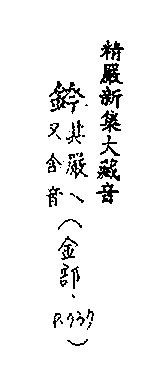 精嚴新集大藏音
鈐其嚴乀
又含音
(金部、P.737)